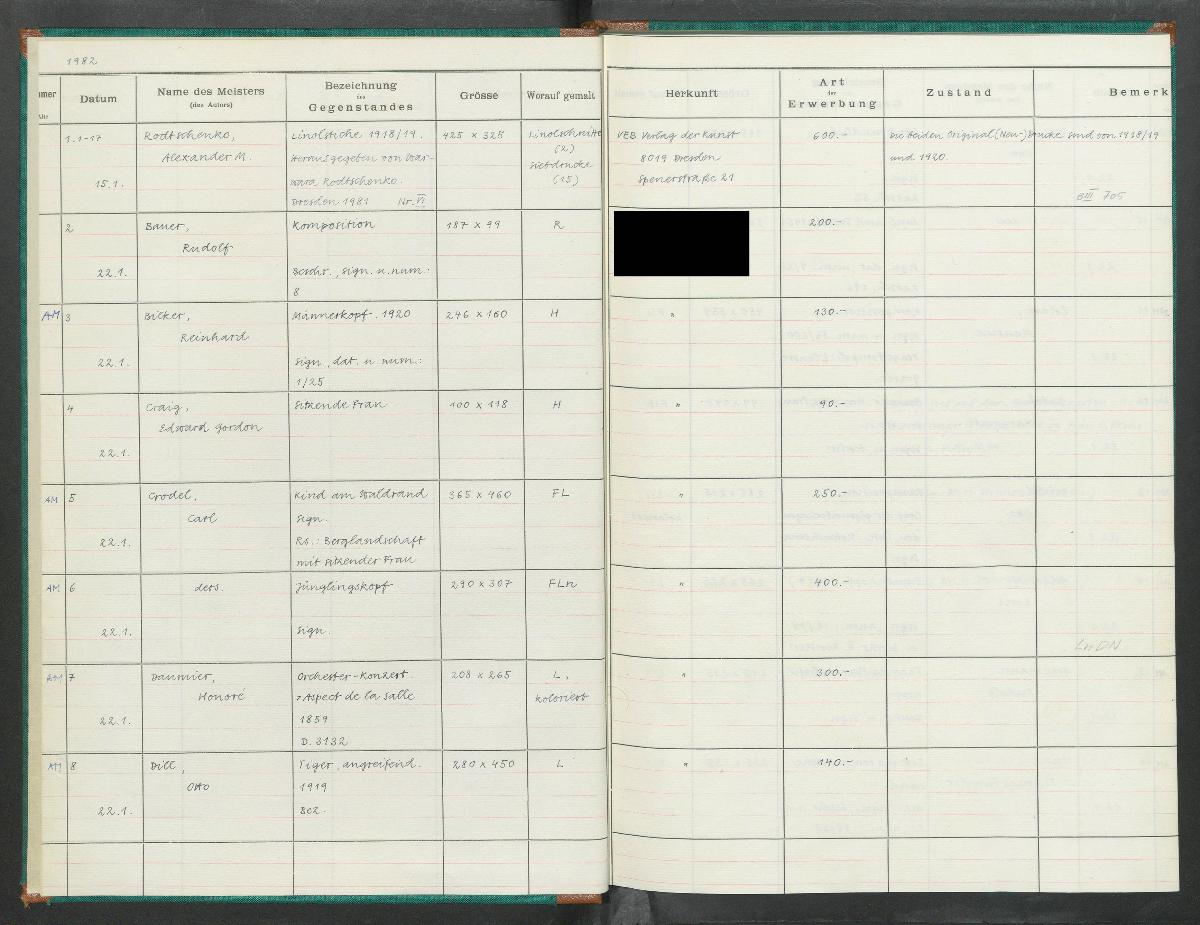 1982
mer
Datum
Name des Meisters
(des Autors)
Bezeichnung
des
Gegenstandes
Grösse
Worauf gemalt
Herkunft
Art
der
Erwerbung
Zustand
Bemerk
1.1-17
Rodtschenko,
Linolstiche 1918/19.
425 x 325
Linolschnitte
VEB Verlag der Kunst
600.-
Die beiden Original (Neu-) Drucke sind von 1918/19
Alexander M.
Herausgegeben von War-
(2)
8019 Dresden
und 1920.
15.1.
wara Rodtschenko.
Siebdrucke
Spenerstraße 21
Dresden 1981 Nr. VI
(15)
B III 705
2
Bauer,
Komposition
187 x 99
R
200.-
Rudolf
22.1.
Beschr., sign. u. num.:
8
AM 3
Bicker,
Männerkopf. 1920
246 x 160
H
"
130.-
Reinhard
22.1.
Sign., dat. u. num.:
1/25
4
Craig,
Sitzende Frau
100 x 118
H
"
90.-
Edward Gordon
22.1.
AM 5
Crodel,
Kind am Waldrand
365 x 460
FL
"
250.-
Carl
Sign.
22.1.
Rs.: Berglandschaft
mit sitzender Frau
AM 6
ders.
Jünglingskopf
290 x 307
FLn
"
400.-
22.1.
Sign.
LnDN
AM 7
Daumier,
Orchester-Konzert.
208 x 265
L,
"
300.-
Honoré
> Aspect de la Salle
koloriert
22.1.
1859
D. 3132
AM 8
Dill,
Tiger, angreifend.
280 x 450
L
"
140.-
Otto
1919
22.1.
Bez.